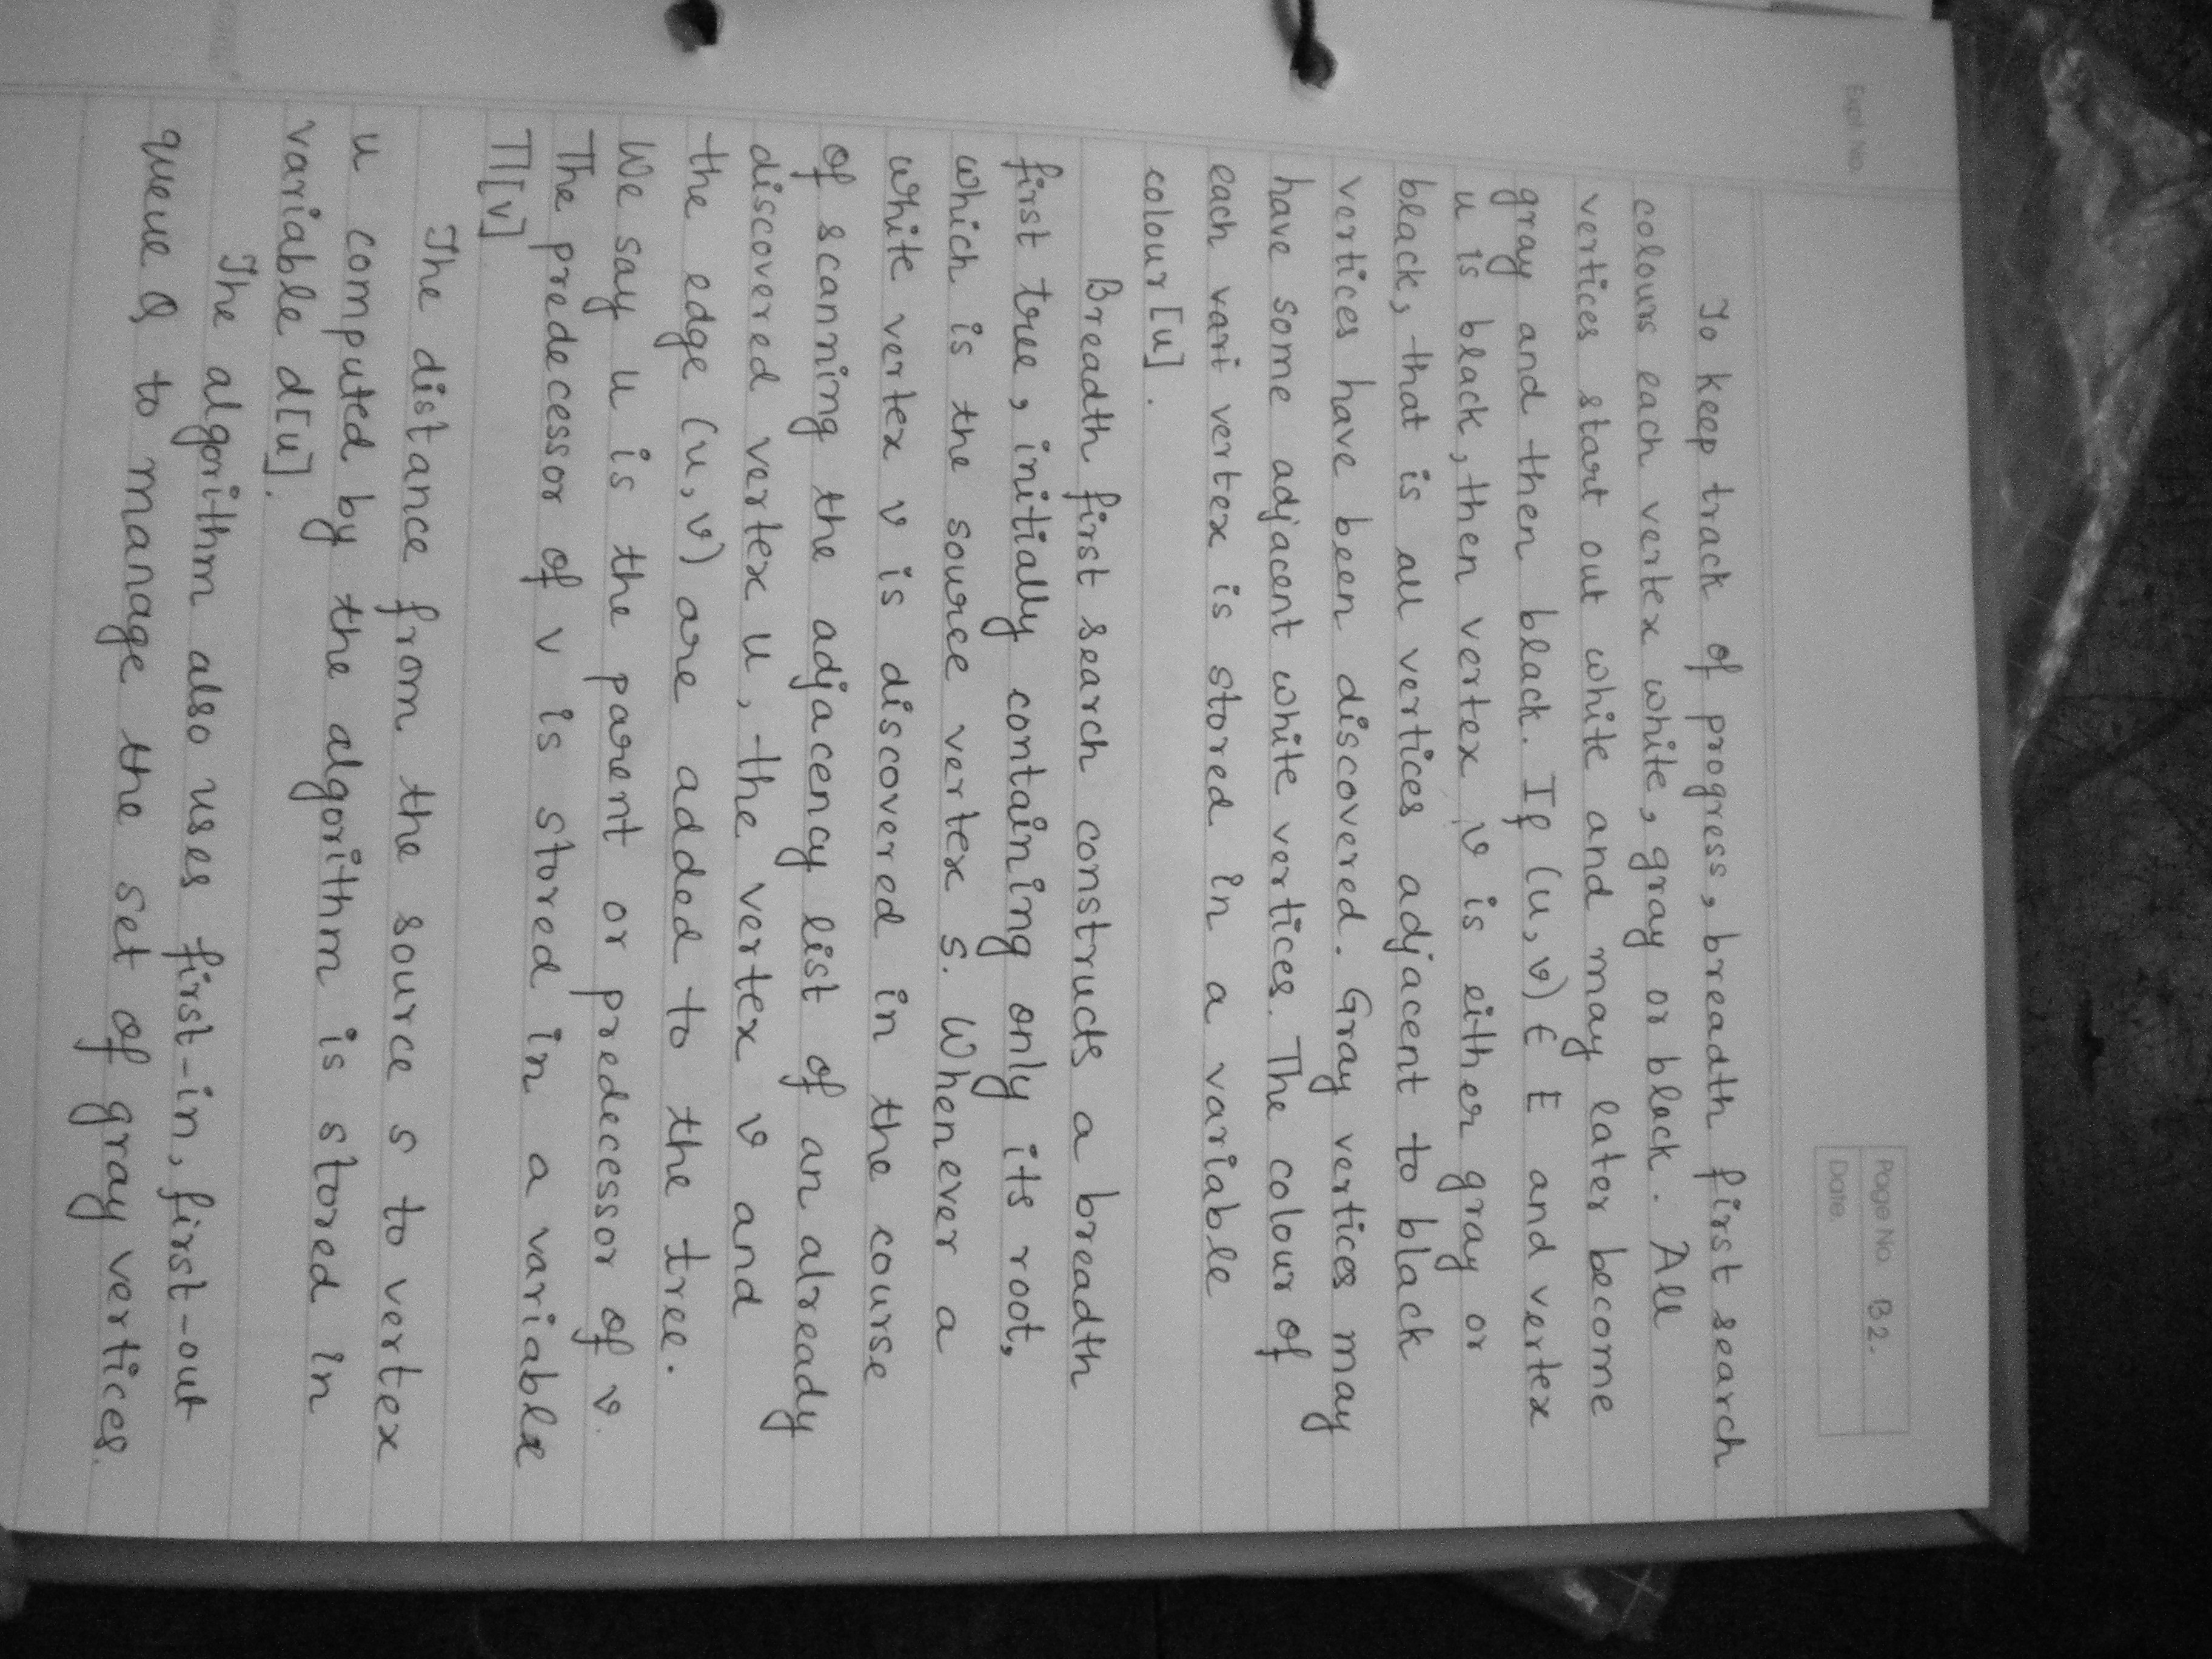 Expt. No.
Page No. B2.
Date.
To keep track of progress, breadth first search
colours each vertex white, gray or black. All
vertices start out white and may later become
gray and then black. If (u,v) ∈ E and vertex
u is black, then vertex v is either gray or
black, that is all vertices adjacent to black
vertices have been discovered. Gray vertices may
have some adjacent white vertices. The colour of
each vari vertex is stored in a variable
colour[u].
Breadth first search constructs a breadth
first tree, initially containing only its root,
which is the source vertex s. Whenever a
white vertex v is discovered in the course
of scanning the adjacency list of an already
discovered vertex u, the vertex v and
the edge (u,v) are added to the tree.
We say u is the parent or predecessor of v.
The predecessor of v is stored in a variable
Π[v]
The distance from the source s to vertex
u computed by the algorithm is stored in
variable d[u].
The algorithm also uses first-in, first-out
queue Q to manage the set of gray vertices.